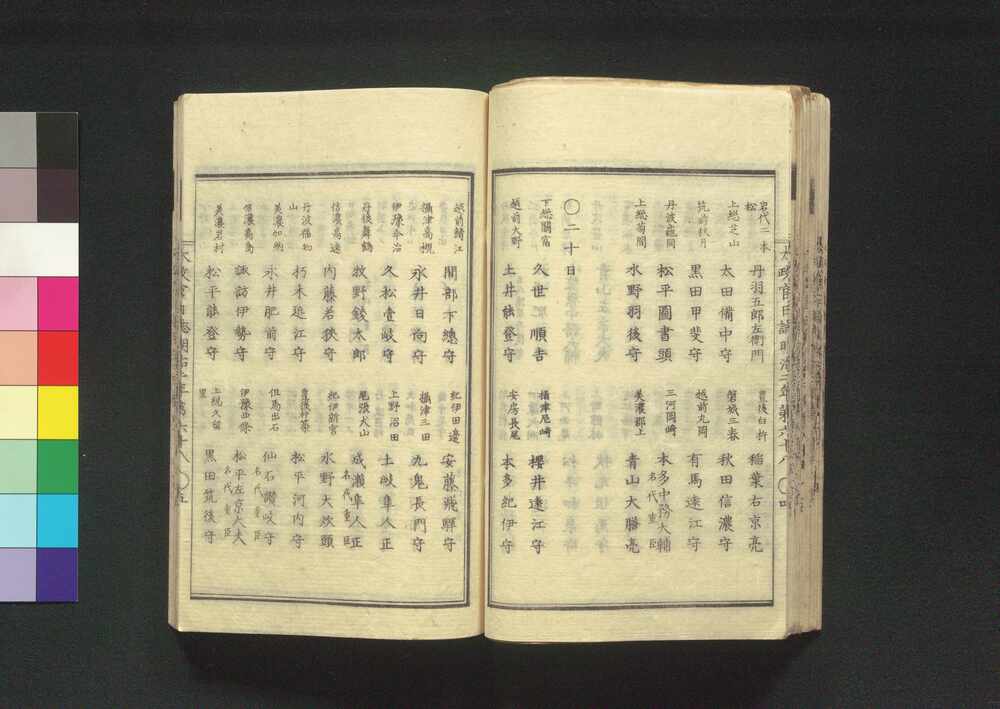 岩代二本松 丹羽五郎左衛門
豊後臼杵 稲葉右京亮
上総芝山 太田備中守
磐城三春 秋田信濃守
筑前秋月 黒田甲斐守
越前丸岡 有馬遠江守
丹波龜岡 松平圖書頭
三河岡崎 本多中務大輔
名代重臣
上総菊間 水野羽後守
美濃郡上 青山大膳亮
〇二十日
下総關宿 久世順吉
攝津尼崎 櫻井遠江守
越前大野 土井能登守
安房長尾 本多紀伊守
越前鯖江 間部下總守
紀伊田邉 安藤飛騨守
攝津高槻 永井日向守
攝津三田 九鬼長門守
伊豫今治 久松壹岐守
上野沼田 土岐隼人正
丹後舞鶴 牧野錢太郎
尾張犬山 成瀬隼人正
名代重臣
信濃高遠 内藤若狹守
紀伊新宮 水野大炊頭
丹波福知山 朽木近江守
豊後杵築 松平河内守
美濃加納 永井肥前守
但馬出石 仙石讃岐守
名代重臣
信濃高島 諏訪伊勢守
伊豫西條 松平左京大夫
名代重臣
美濃岩村 松平能登守
上総久留里 黒田筑後守